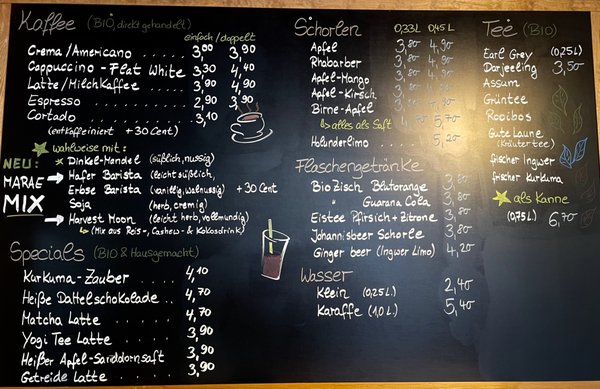 Kaffee (BIO, direkt gehandelt)
einfach / doppelt
Crema / Americano ..... 3,00 3,90
Cappuccino - Flat White 3,30 4,40
Latte / Milchkaffee ..... 3,90 4,90
Espresso ..... 2,90 3,90
Cortado ..... 3,10
(entkoffeiniert + 30 Cent)
wahlweise mit:
Dinkel-Mandel (süßlich, nussig)
Hafer Barista (leicht süßlich,
Erbse Barista (vanillig, walnussig) + 30 Cent
Soja (herb, cremig)
Harvest Moon (leicht herb, vollmundig)
(Mix aus Reis-, Cashew- & Kokosdrink)
NEU:
MARAE
MIX
Specials (BIO & Hausgemacht)
Kurkuma-Zauber ..... 4,10
Heiße Dattelschokolade .. 4,70
Matcha Latte ..... 4,70
Yogi Tee Latte ..... 3,90
Heißer Apfel-Sanddornsaft 3,90
Getreide Latte ..... 3,90
Schorlen 0,33L 0,45L
Apfel 3,80 4,90
Rhabarber 3,80 4,90
Apfel-Mango 3,80 4,90
Apfel-Kirsch 3,80 4,90
Birne-Apfel 3,80 4,90
alles als Saft 5,70
Holunderlimo 5,20
Flaschengetränke
Bio Zisch Blutorange 3,80
" Guarana Cola 3,80
Eistee Pfirsich + Zitrone 3,80
Johannisbeer Schorle 3,80
Ginger beer (Ingwer Limo) 4,20
Wasser
Klein (0,25L) 2,40
Karaffe (1,0L) 5,40
Tee (BIO)
Earl Grey (0,25L)
Darjeeling 3,50
Assum
Grüntee
Rooibos
Gute Laune
(Kräutertee)
frischer Ingwer
frischer Kurkuma
als Kanne
(0,75L) 6,70